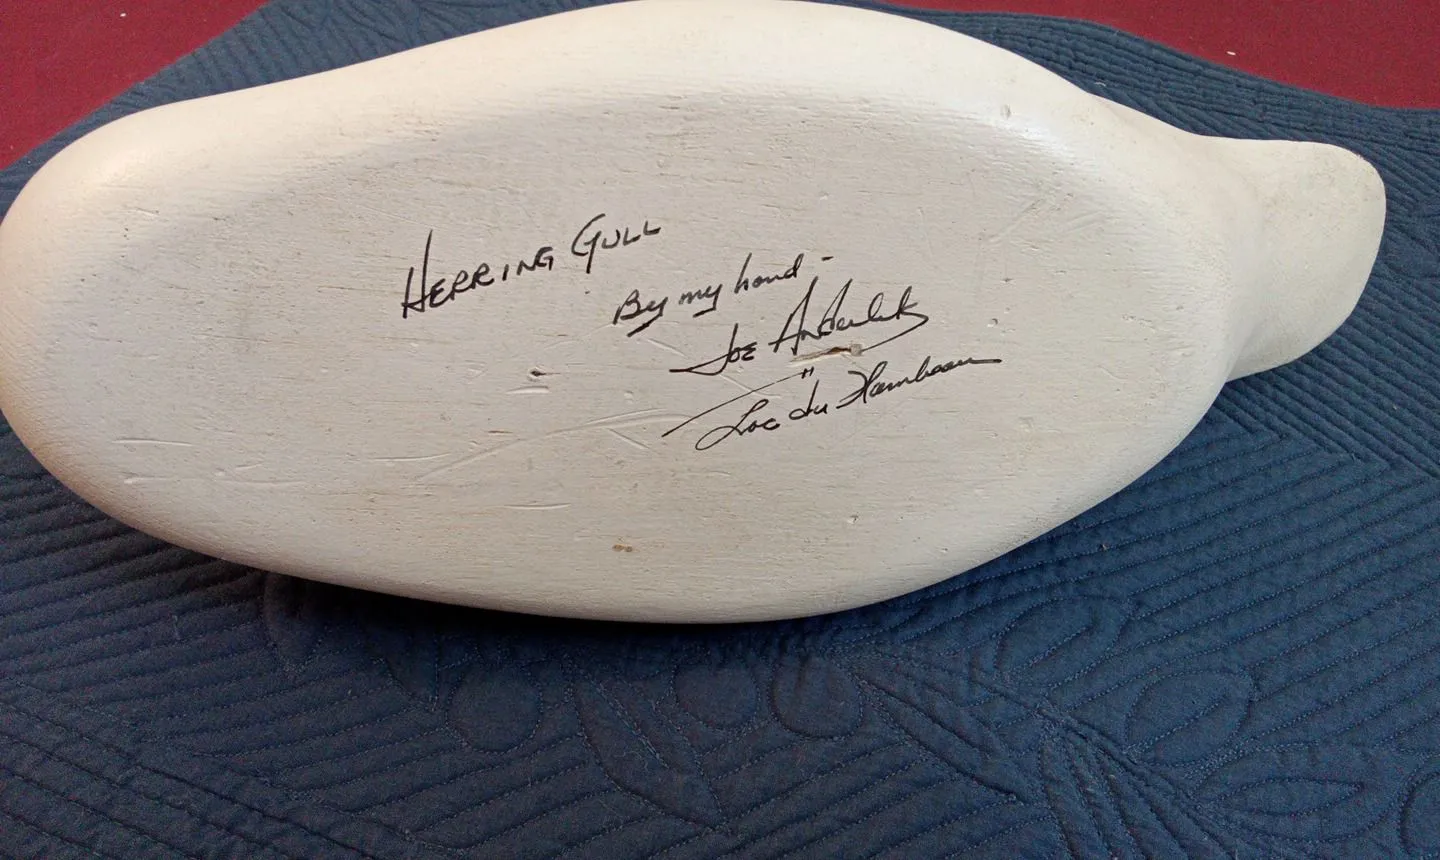 HERRING GULL
By my hand -
JOE
"Lac du Flambeau